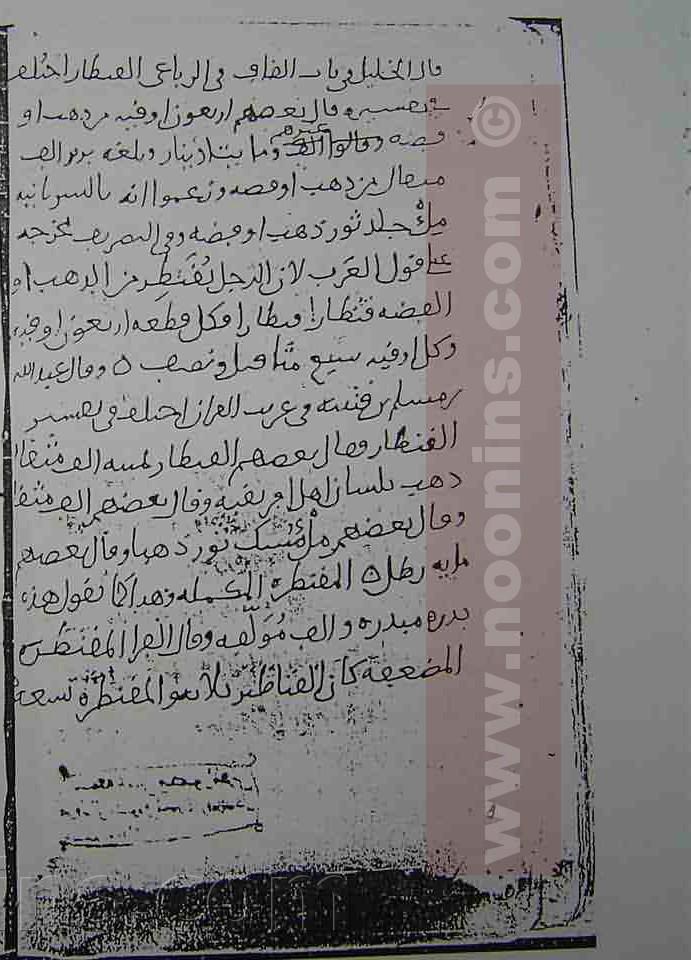 قال الخليل في باب القاف في الرباعي القنطار اختلف
في تفسيره قال بعضهم اربعون اوقيه من ذهب او
فضه وقالوا الف وما يتا دينار وبلغه بربر الف
مثقال من ذهب او فضه وزعموا انه بالسريانيه
ملء جلد ثور ذهب او فضه وفي التصريف مخرجه
على قول العرب لان الرجل يُقَنطِر من الذهب او
الفضه قنطارا قنطارا فكل قطعه اربعون اوقيه
وكل اوقيه سبع مثاقيل ونصف ٥ وقال عبد الله
بن مسلم بن قتيبه في غريب القران اختلف في تفسير
القنطار وقال بعضهم القنطار ثمنيه الف مثقال
ذهب بلسان اهل افريقيه وقال بعضهم الف مثقال
وقال بعضهم ملء مَسك ثور ذهبا وقال بعضهم
مايه رطل ٥ المقنطره المكمله وهذا كما تقول هذه
بدره مبدره والف مُؤلّفه وقال الفرا المقنطره
المضعفة كان القناطير ثلاثه والمقنطرة تسعه
www.noonins.com ©